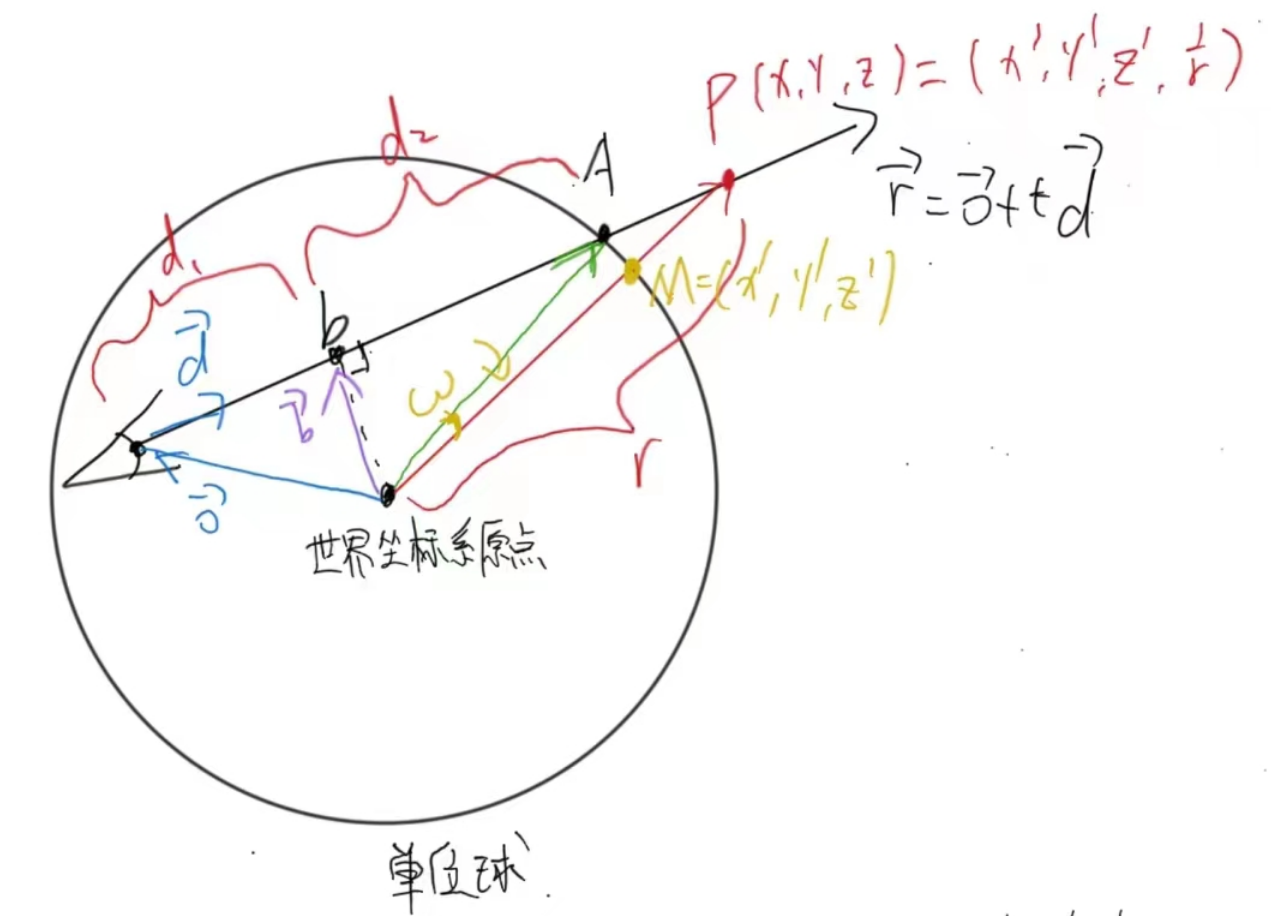 P(x,y,z)=(x',y',z',1/r)
d₂
A
r⃗=o⃗+td⃗
d₁
M=(x',y',z')
b
d⃗
b⃗
ω
r
o⃗
世界坐标系原点
单位球